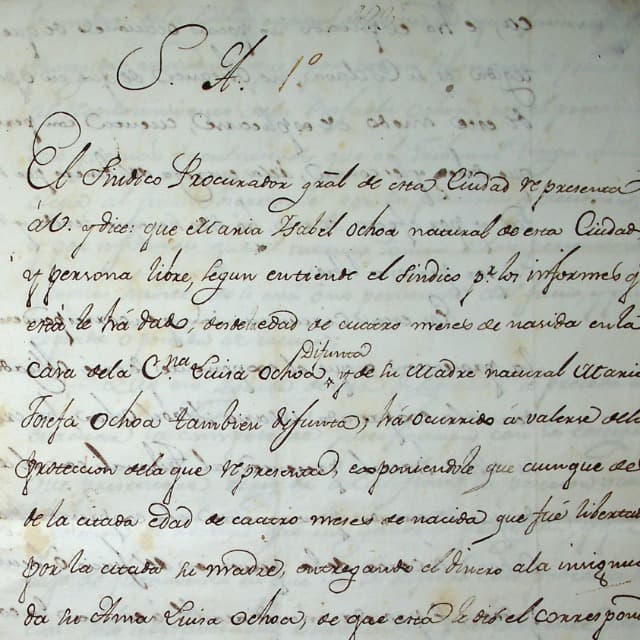 S. A. 1º
El Sindico Procurador gral de esta Ciudad representa
á V. y dice: que Maria Isabel Ochoa natural de esta Ciudad
y persona libre, segun entiende el sindico pr. los informes q
está le há dado, desde hedad de cuatro meses de nasida en la
casa de la C.na Luisa Ochoa difunta y de su Madre natural Maria
Josefa Ochoa tambien difunta, há ocurrido á valerse de la
proteccion de la que representa, exponiendole que aunque de
de la citada edad de cuatro meses de nacida que fué libertad
por la citada su madre, entregando el dinero a la insinua
da su Ama Luisa Ochoa, de que está le dió el correspon